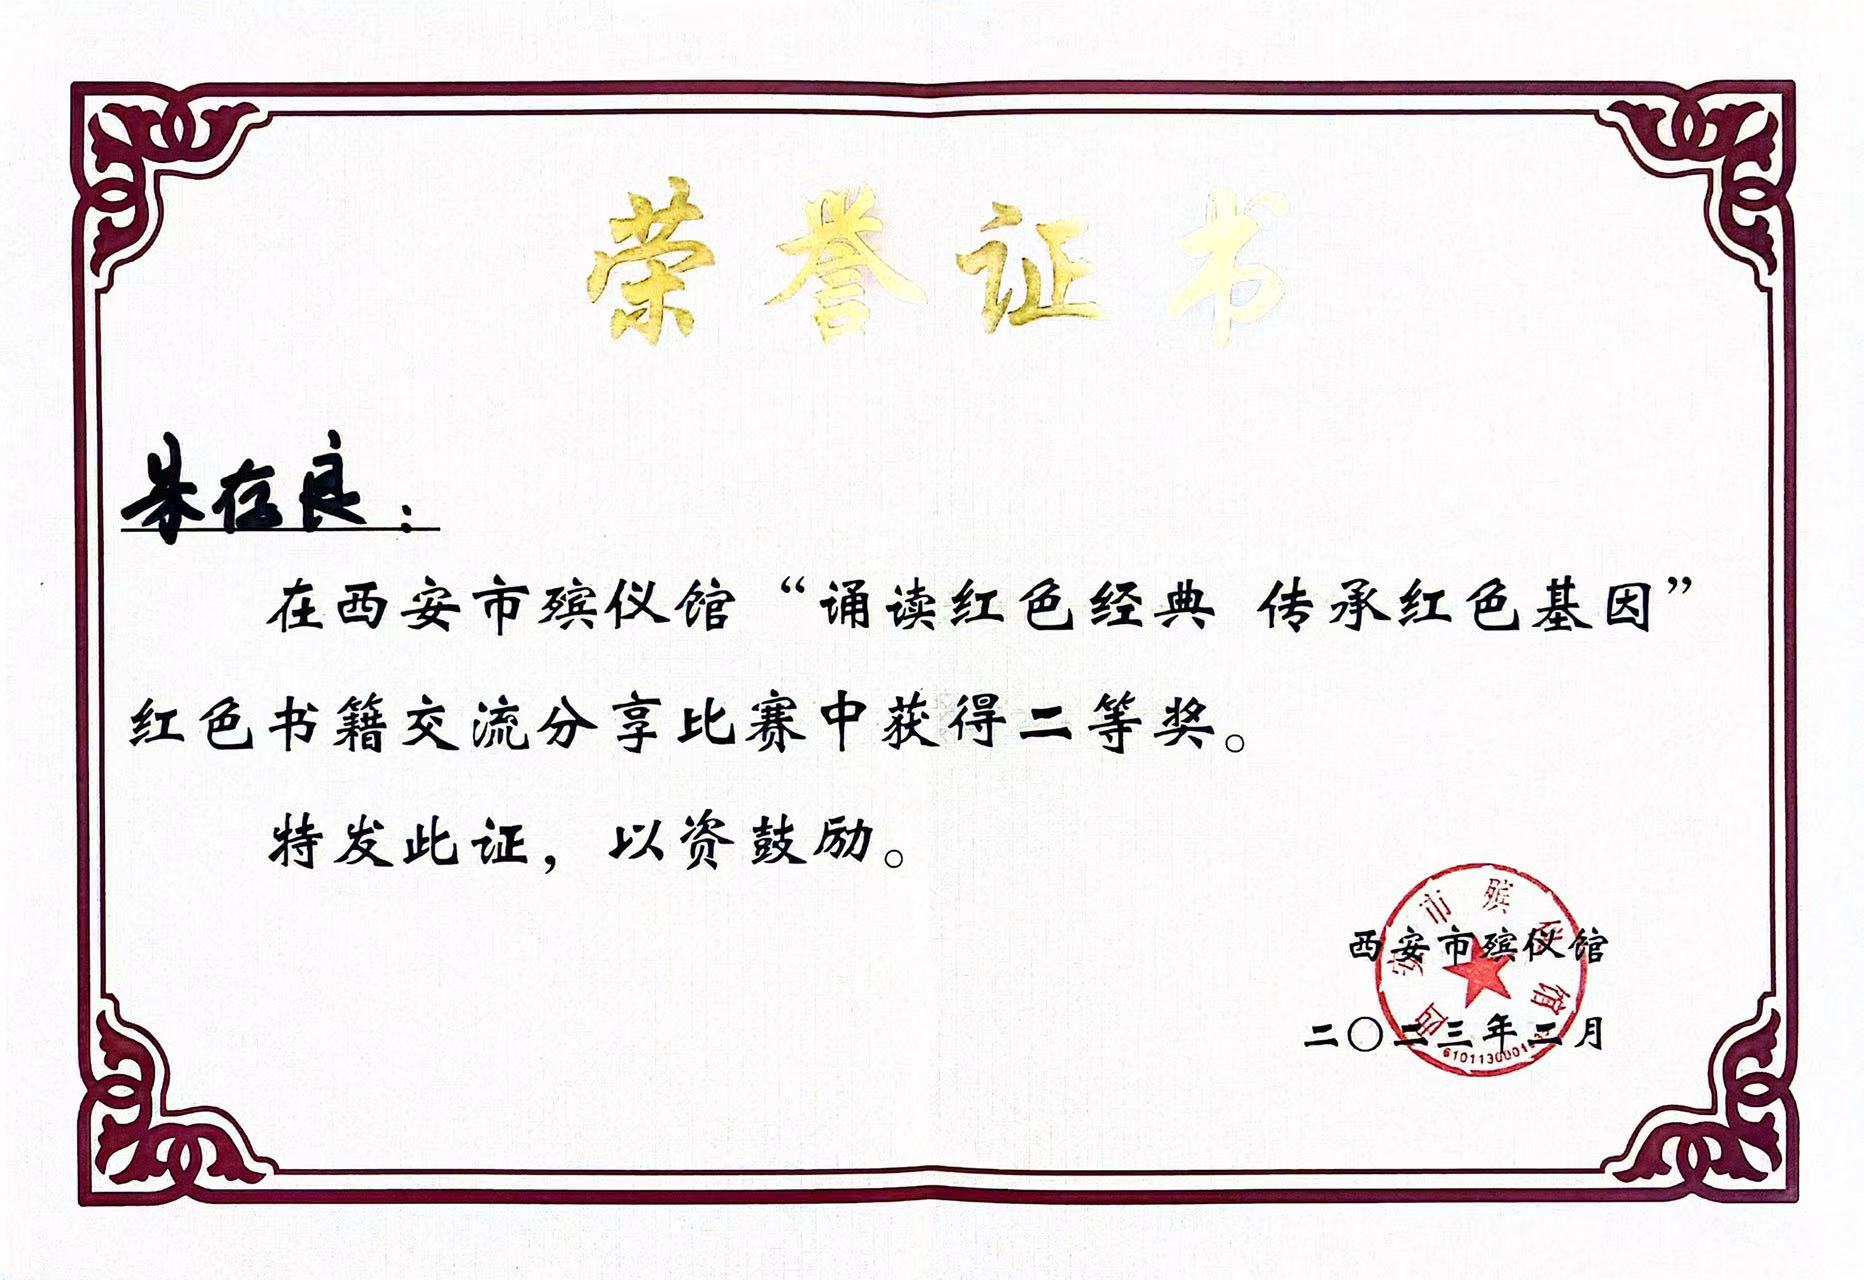 荣誉证书
朱存良：
在西安市殡仪馆“诵读红色经典 传承红色基因”
红色书籍交流分享比赛中获得二等奖。
特发此证，以资鼓励。
西安市殡仪馆
二〇二三年二月
西安市殡仪馆